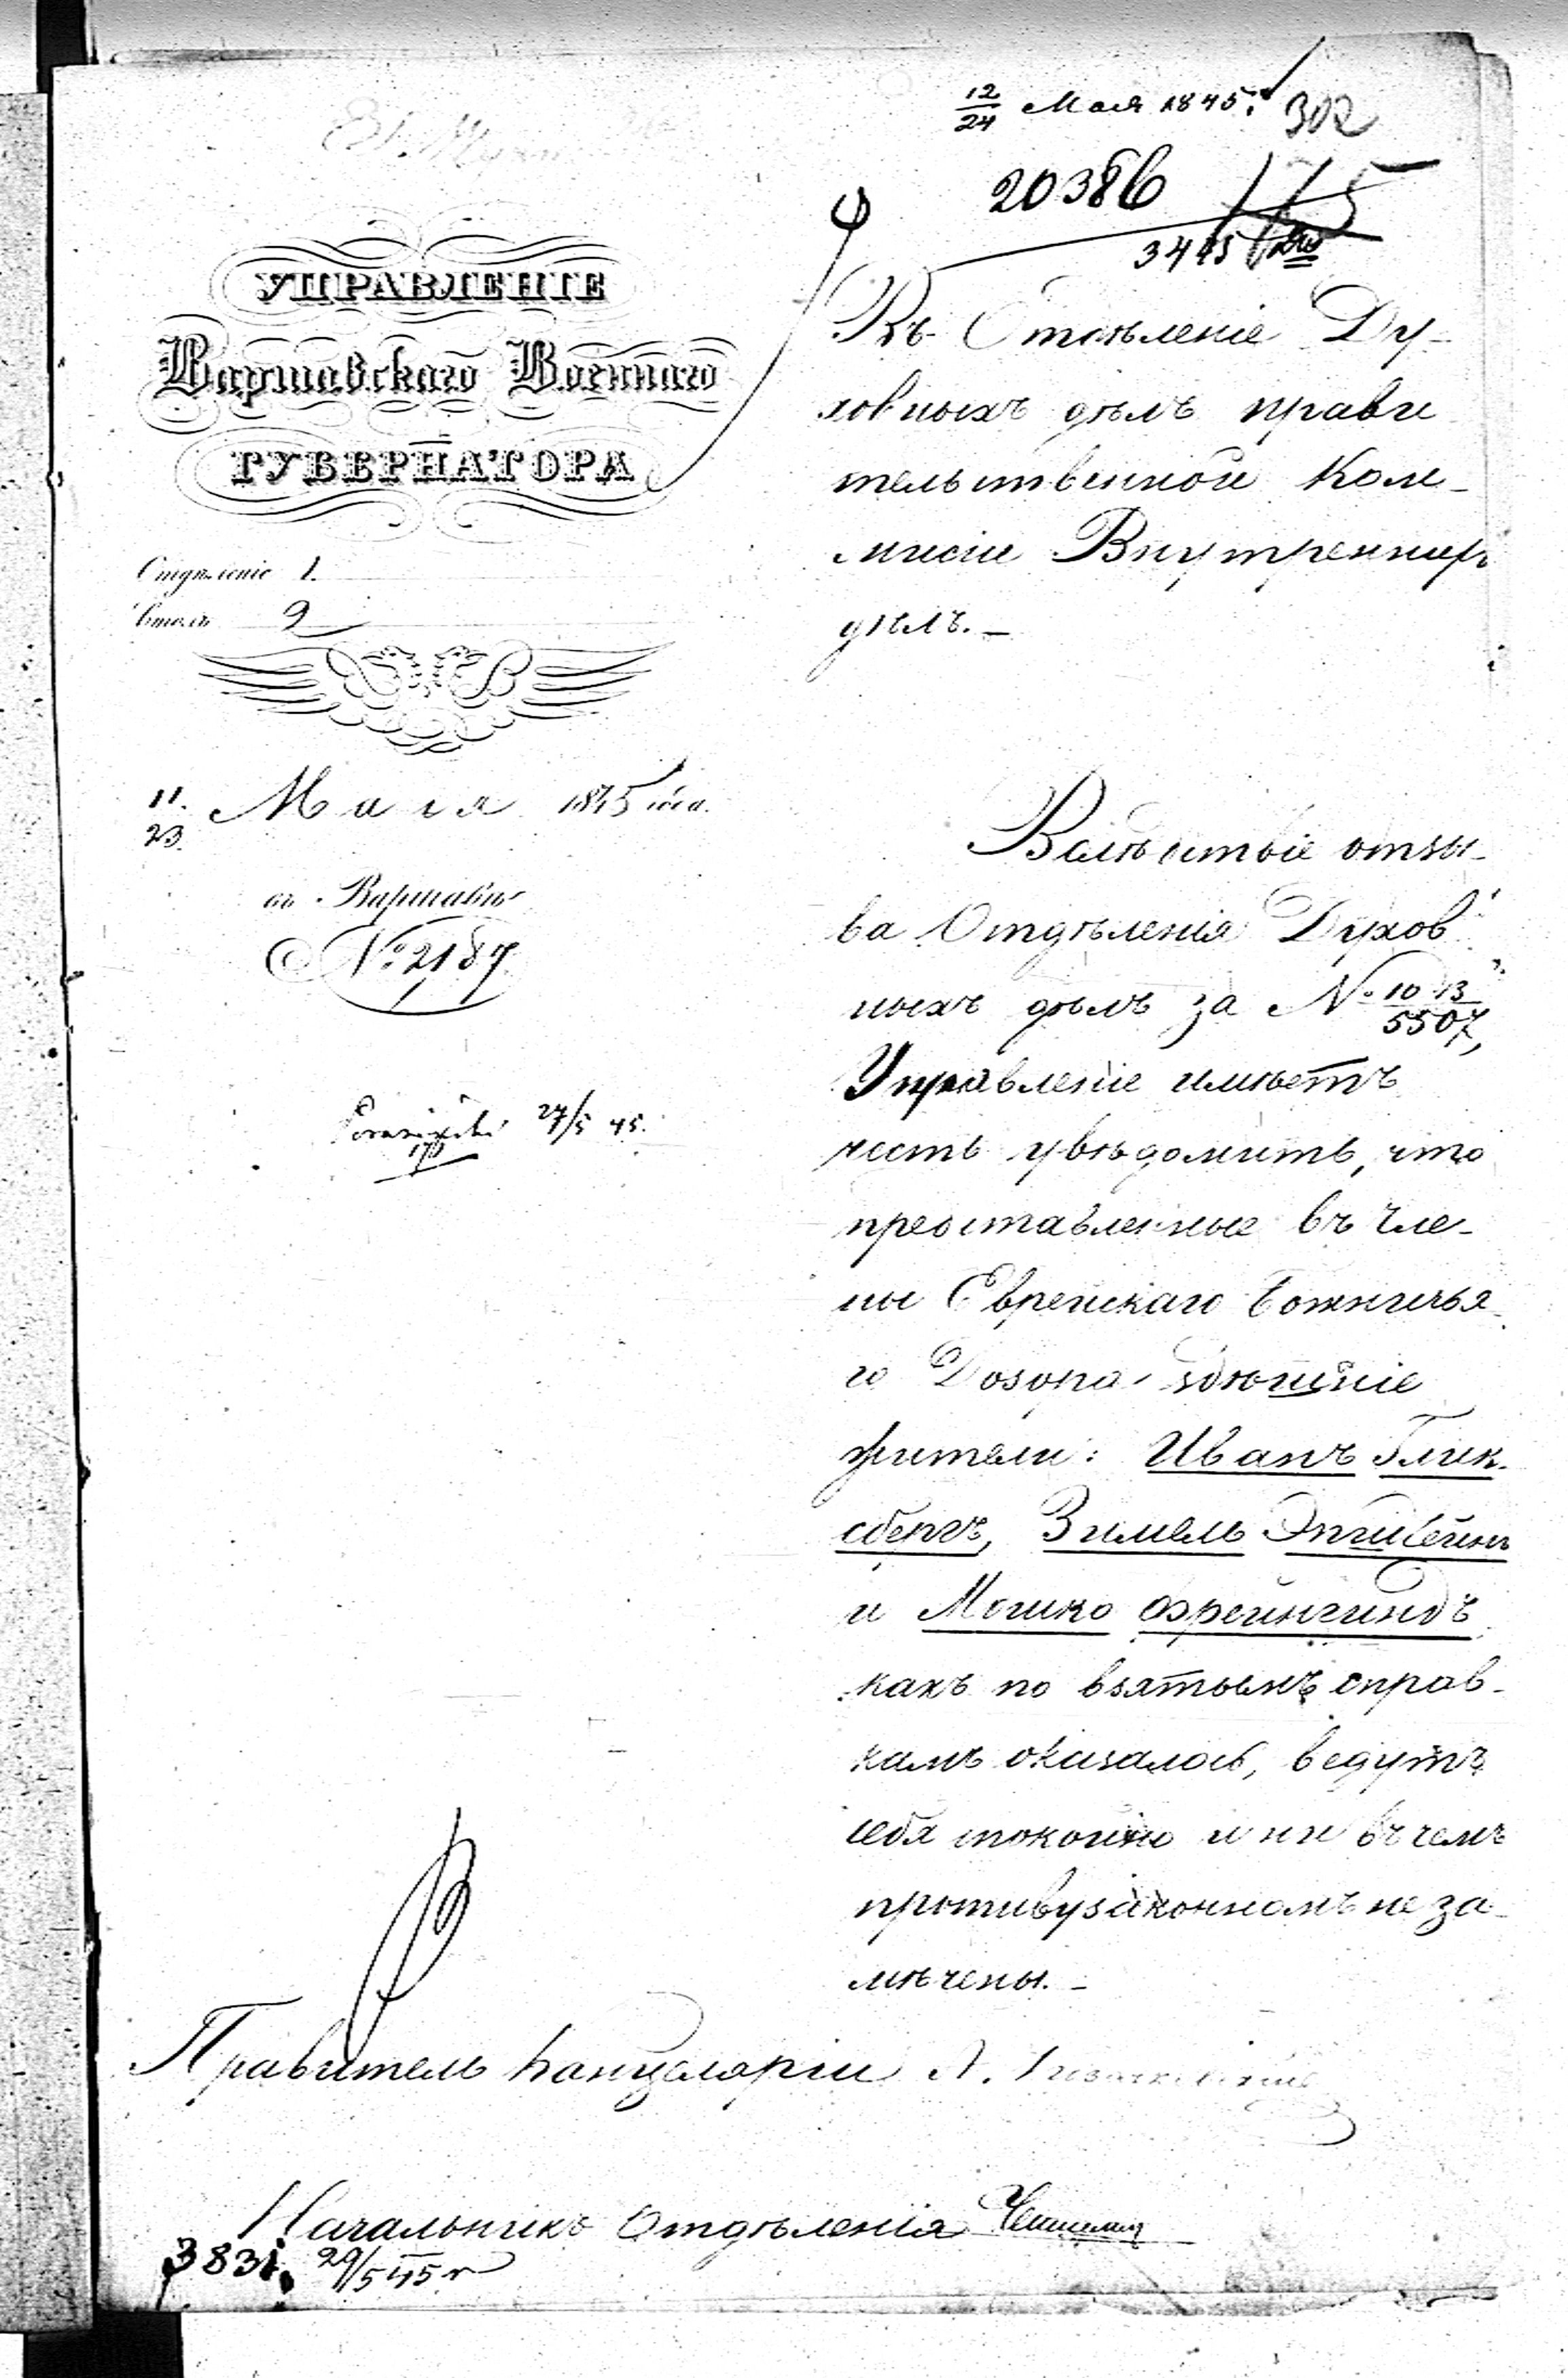 12/24 Мая 1845. 302
20386 175
УПРАВЛЕНІЕ
Варшавскаго Военнаго
ГУБЕРНАТОРА
Отдѣленіе 1.
Столъ 2
11./23. Мая 1845 года.
въ Варшавѣ
№ 2187
27/5 45.
Въ Отдѣленіе Ду-
ховныхъ дѣлъ прави
тельственной Ком-
мисіи Внутреннихъ
дѣлъ.-
Вслѣдствіе отзы-
ва Отдѣленія Духов
ныхъ дѣлъ за № 10-13/5507,
Управленіе имѣетъ
честь увѣдомить, что
представленные въ чле-
ны Еврейскаго Божничья-
го Дозора здѣшніе
жители: Иванъ Глик-
сбергъ, Зимель Эпштейнъ
и Мошко Фрейнгиндъ
какъ по взятымъ справ-
камъ оказалось, ведутъ
себя спокойно и ни въ чемъ
противузаконномъ не за-
мѣчены.-
Правитель Канцеляріи А.
Начальникъ Отдѣленія
3831. 29/5 45 г